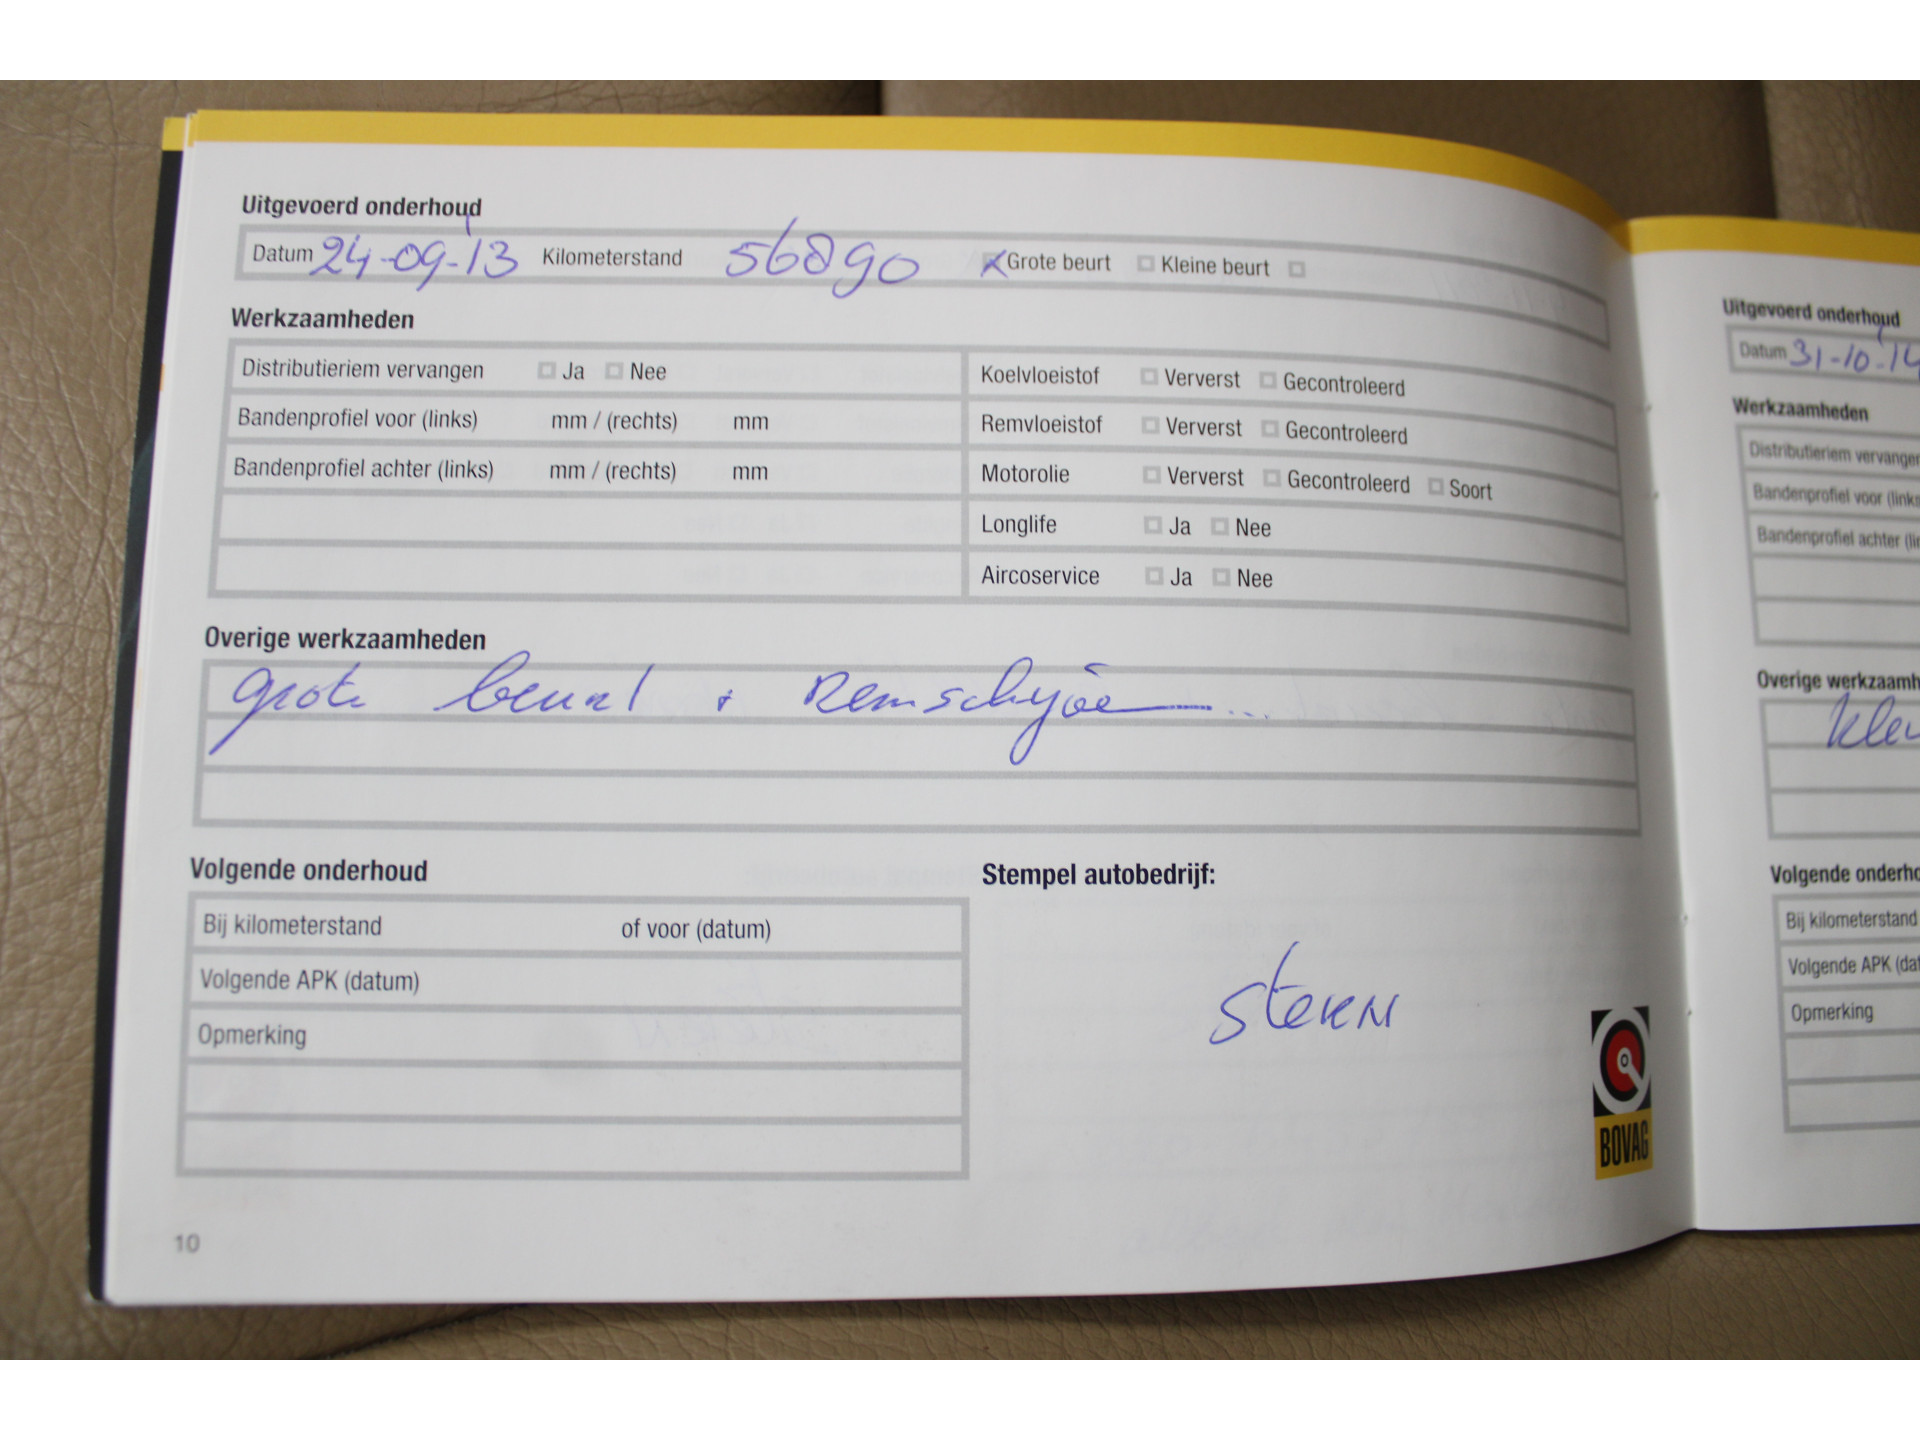 Uitgevoerd onderhoud
Datum 24-09-'13 Kilometerstand 56890 Grote beurt Kleine beurt
Werkzaamheden
Distributieriem vervangen Ja Nee
Bandenprofiel voor (links) mm / (rechts) mm
Bandenprofiel achter (links) mm / (rechts) mm
Koelvloeistof Ververst Gecontroleerd
Remvloeistof Ververst Gecontroleerd
Motorolie Ververst Gecontroleerd Soort
Longlife Ja Nee
Aircoservice Ja Nee
Overige werkzaamheden
grote beurt +
Volgende onderhoud
Bij kilometerstand of voor (datum)
Volgende APK (datum)
Opmerking
Stempel autobedrijf:
Stern
BOVAG
10
Uitgevoerd onderhoud
Datum 31-10-'14
Werkzaamheden
Distributieriem vervangen
Bandenprofiel voor (links
Bandenprofiel achter (lin
Overige werkzaamh
Klei
Volgende onderho
Bij kilometerstand
Volgende APK (dat
Opmerking